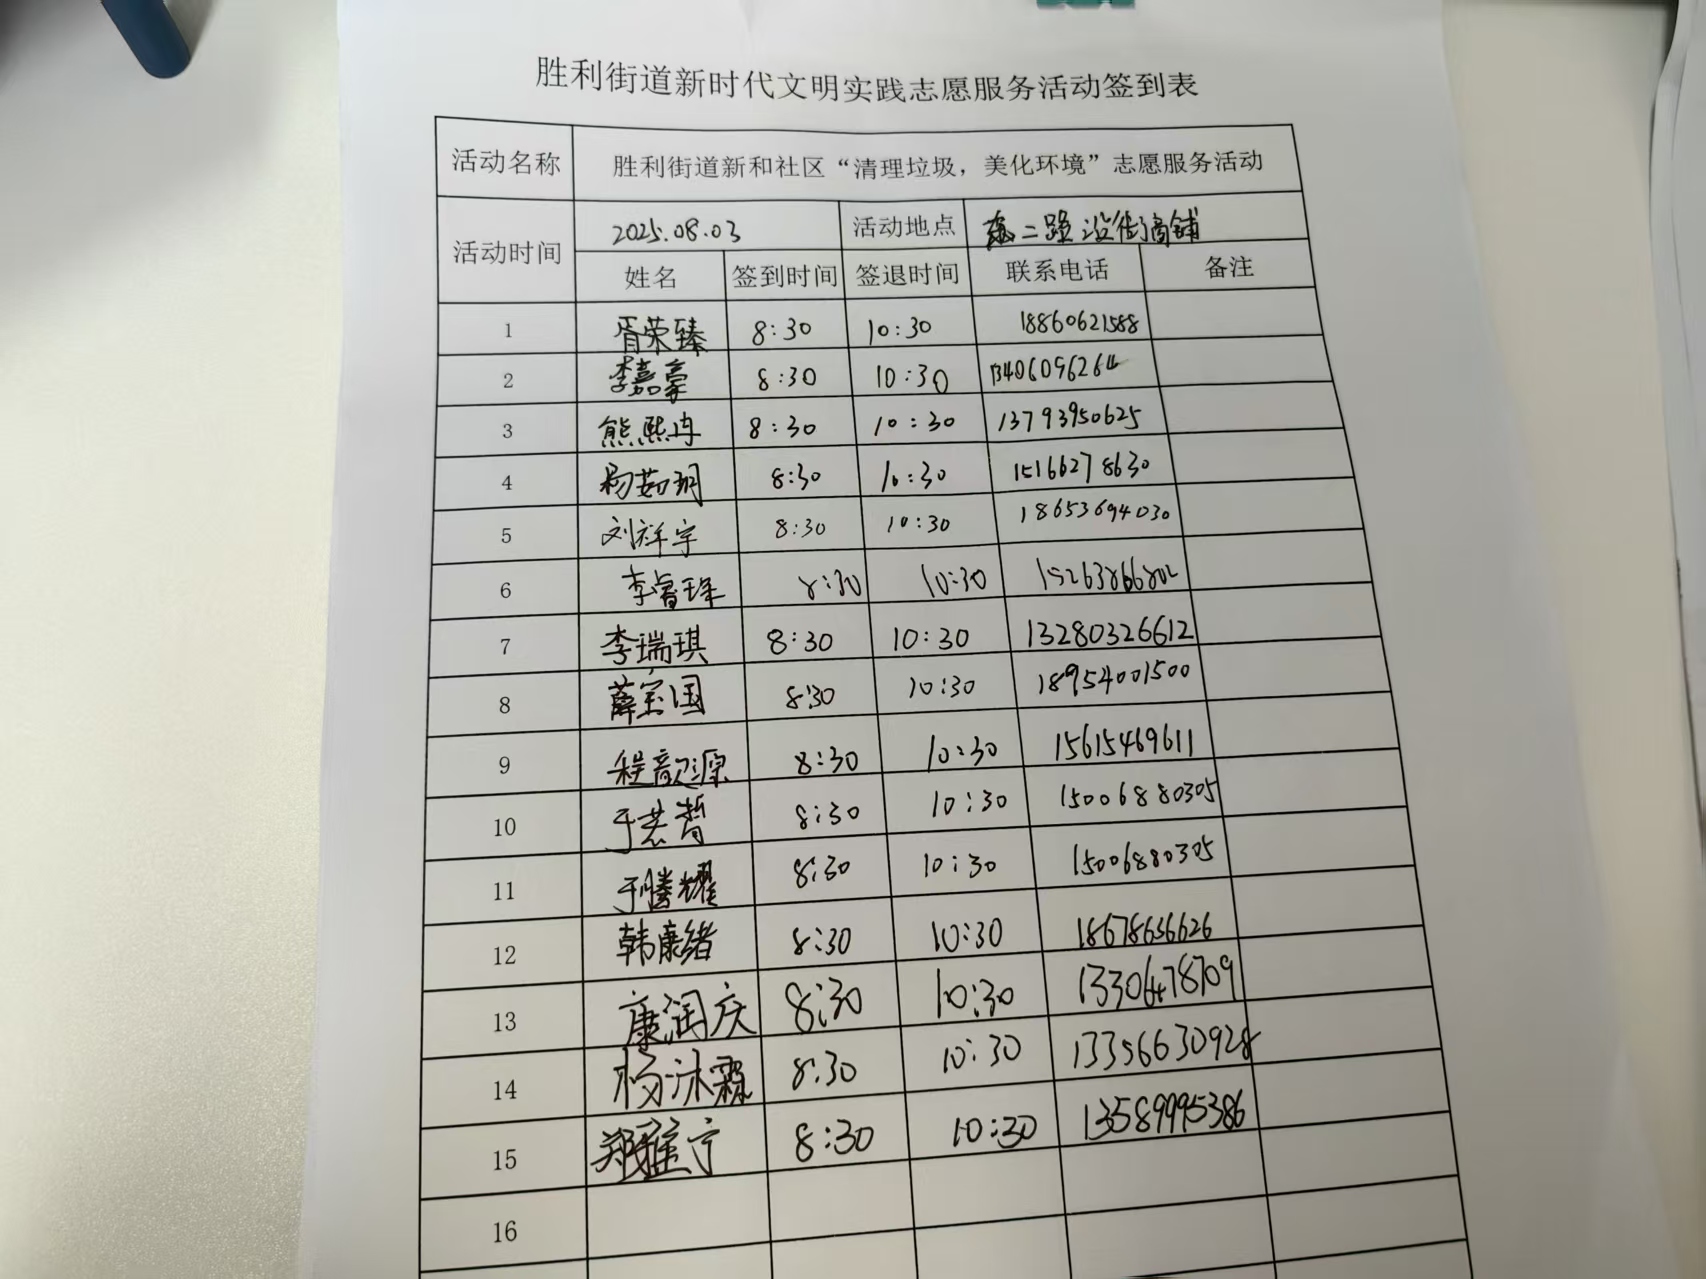 胜利街道新时代文明实践志愿服务活动签到表
活动名称 胜利街道新和社区“清理垃圾，美化环境”志愿服务活动
活动时间 2025.08.03 活动地点 东二路沿街商铺
姓名 签到时间 签退时间 联系电话 备注
1 胥荣臻 8:30 10:30 18860621588
2 李嘉豪 8:30 10:30 13406096264
3 熊熙冉 8:30 10:30 13793950625
4 杨茹玥 8:30 10:30 15166278630
5 刘祥宇 8:30 10:30 18653694030
6 李睿 8:30 10:30 15263866802
7 李瑞琪 8:30 10:30 13280326612
8 薛宝国 8:30 10:30 18954001500
9 程歆源 8:30 10:30 15615469611
10 于若 8:30 10:30 15006880305
11 于腾耀 8:30 10:30 15006880305
12 韩康绪 8:30 10:30 18678656626
13 康润庆 8:30 10:30 13306478709
14 杨沐霖 8:30 10:30 13356630928
15 郑雅宁 8:30 10:30 13589995386
16